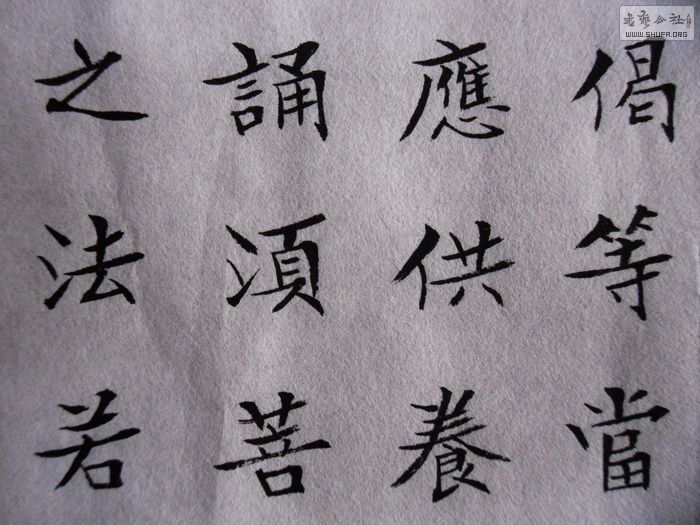 偈等當
應供養
誦湏菩
之法若
書藝公社
WWW.SHUFA.ORG